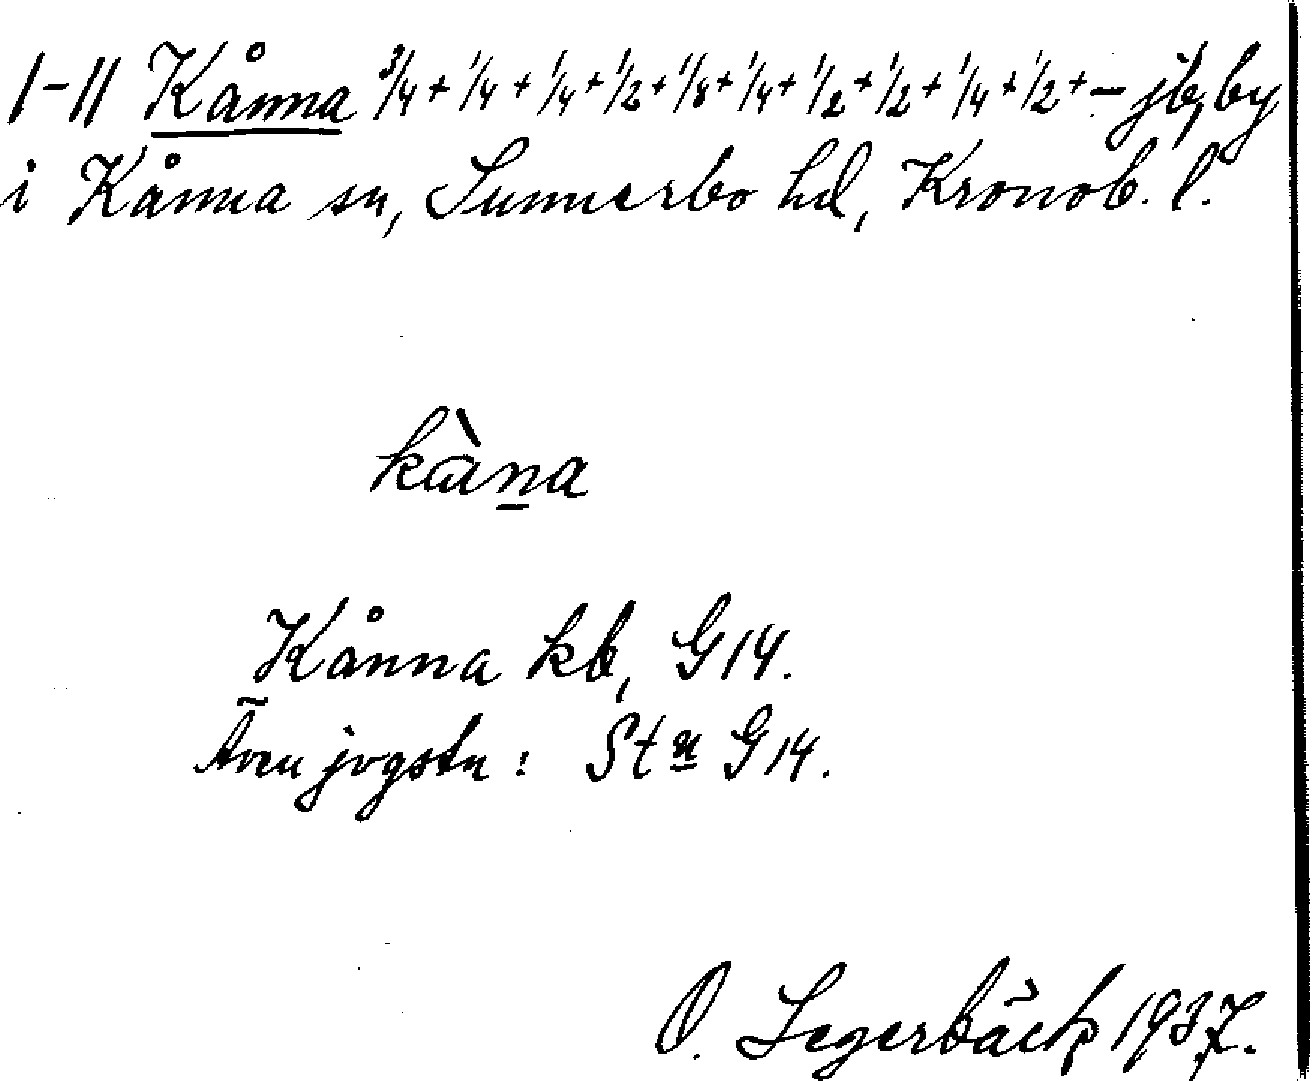 1-11 Kånna 3/4 + 1/4 + 1/4 + 1/2 + 1/8 + 1/4 + 1/2 + 1/2 + 1/4 + 1/2 + - jb, by
i Kånna sn, Sunnerbo hd, Kronob. l.
kàna
Kånna kb, G 14.
Även jvgstn: Stn G 14.
O. Segerbäck 1937.